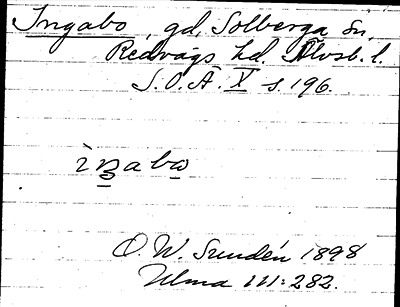 Ingabo, gd, Solberga sn,
Redvägs hd. Älvsb. l.
S.O.Ä. X s. 196.
ìŋabo
O. W. Sundén 1898
Ulma 111:282.